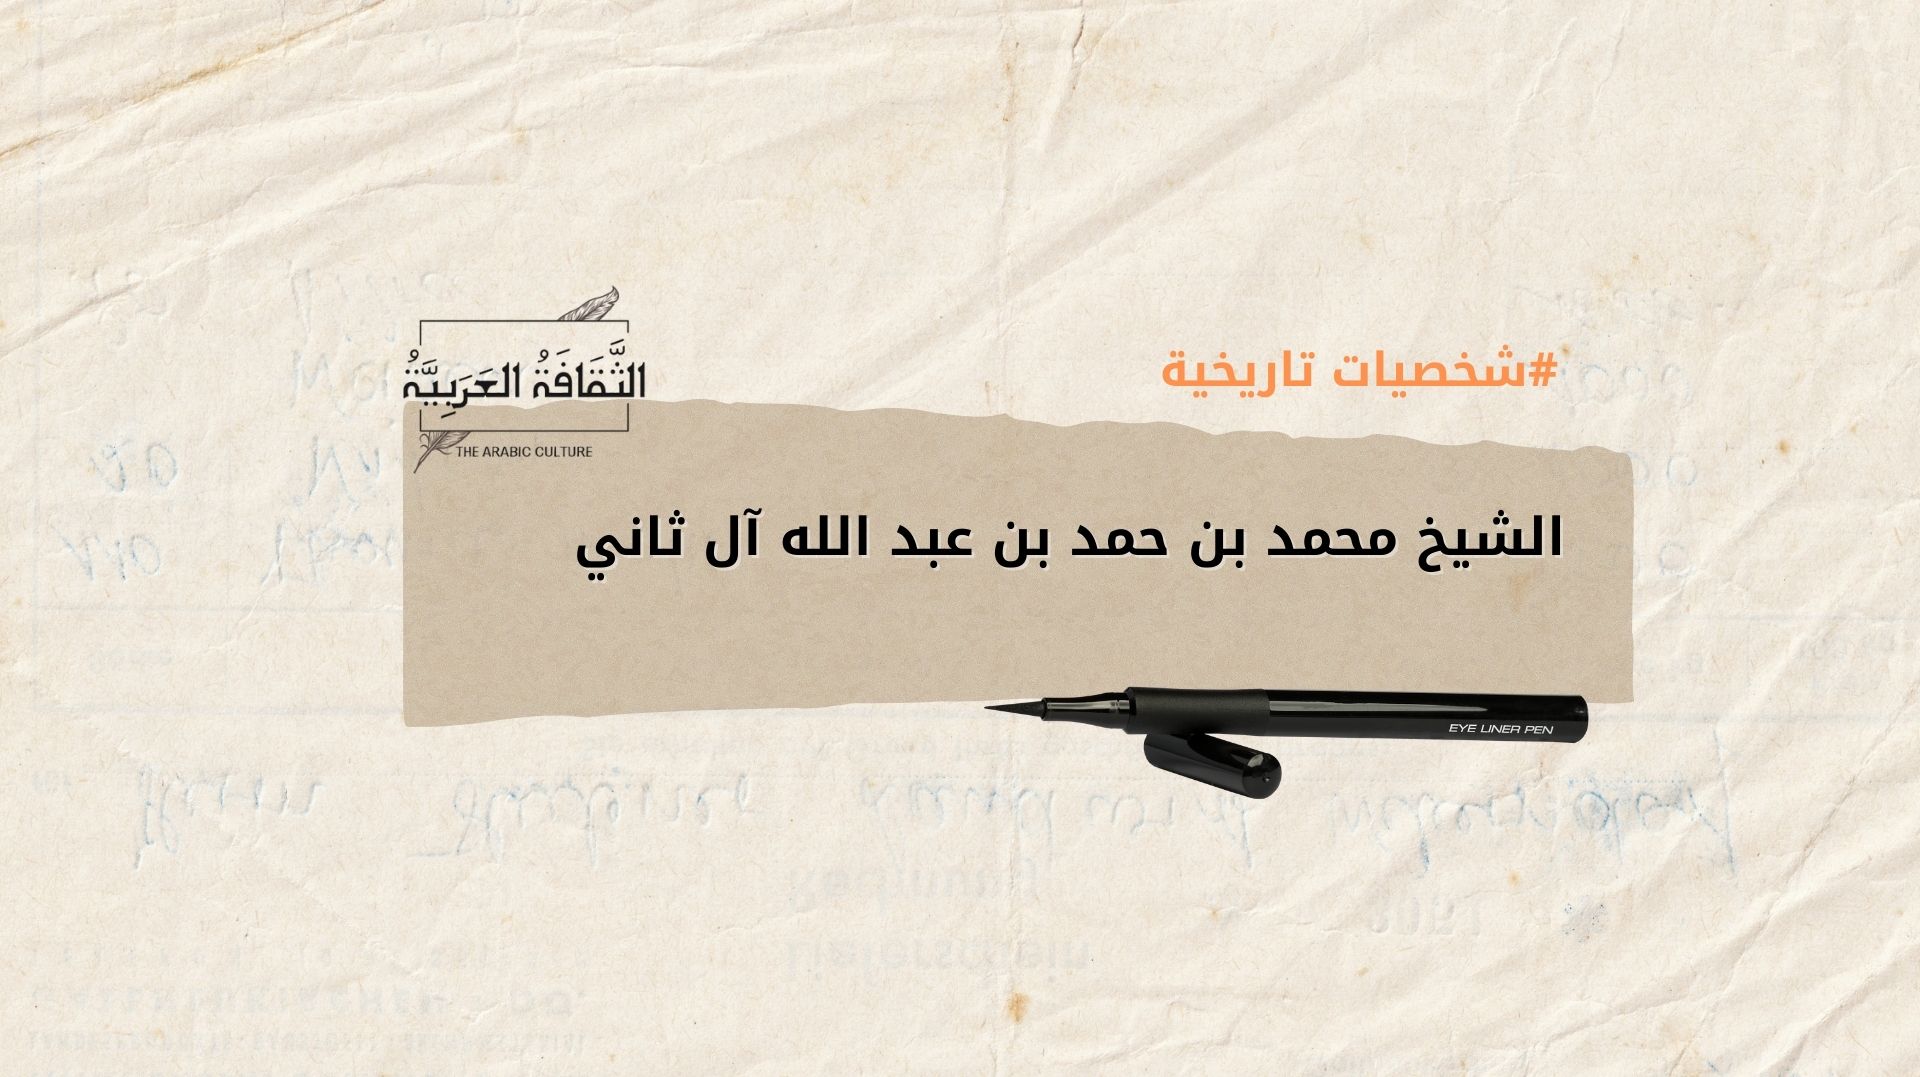 #شخصيات تاريخية
الثَّقَافَةُ العَرَبِيَّةُ
THE ARABIC CULTURE
الشيخ محمد بن حمد بن عبد الله آل ثاني
EYE LINER PEN